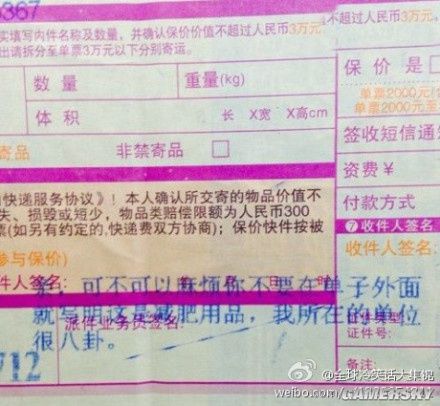 367
实填写内件名称及数量，并确认保价价值不超过人民币3万元 不超过人民币3万元
出请拆分至单票3万元以下分别寄运。
数 量 重量(kg) 保 价 是
单票2000元(
体 积 长 X宽 X高cm 单票2000元至
签收短信通
寄品 非禁寄品 资费¥
快递服务协议》！本人确认所交寄的物品价值不
失、损毁或短少，物品类赔偿限额为人民币300 付款方式
票(如另有约定的,快递费双方协商)；保价快件按被 ❼收件人签名
参与保价) 收件人签名:
件人签名: 年 月 日 时
亲，可不可以麻烦你不要在单子外面
就写明这是减肥用品，我所在的单位
派件业务员签名:
证件号:
很八卦。
712
备注:
@全球冷笑话大集锦
weibo.com/
GAMERSKY